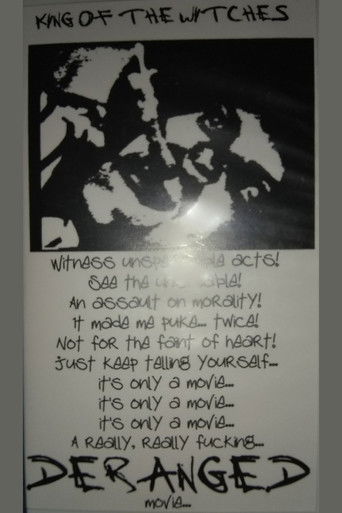 KING OF THE WITCHES
Witness unspeakable acts!
See the
An assault on morality!
It made me puke... twice!
Not for the faint of heart!
Just keep telling yourself...
it's only a movie...
it's only a movie...
it's only a movie...
A really, really fucking...
DERANGED
movie...